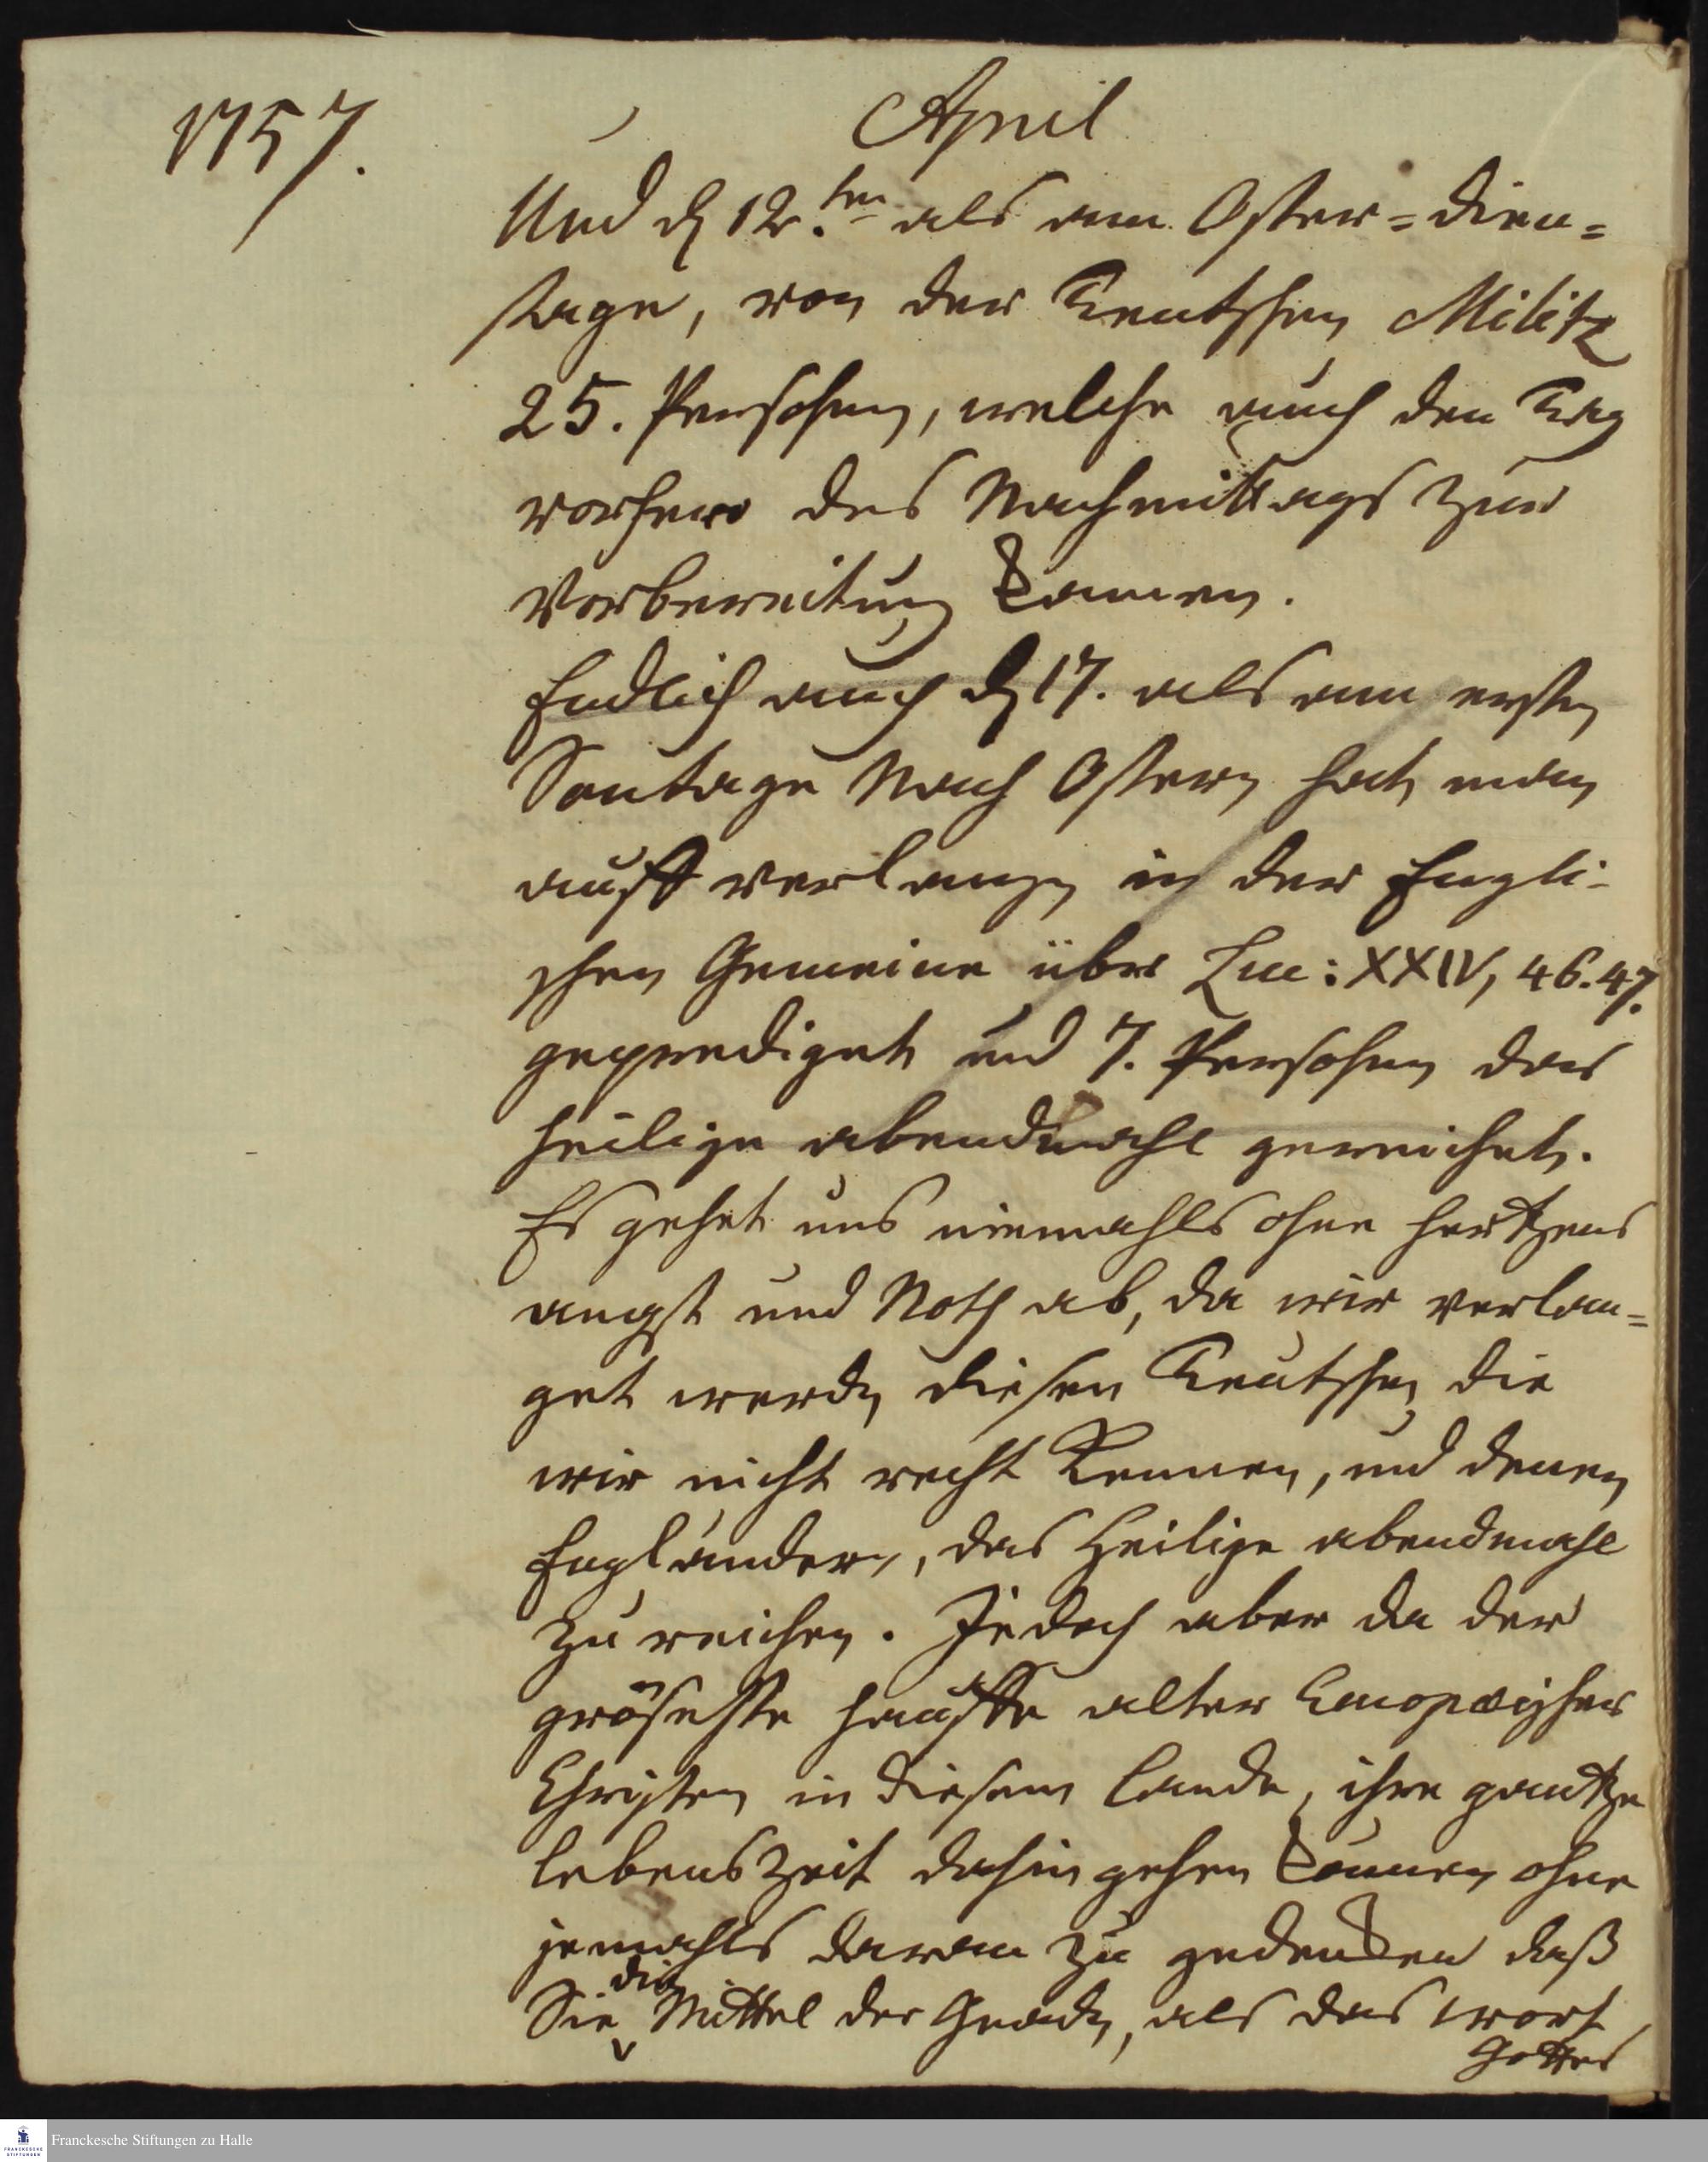 1757.
April
Und d 12.ten als am Oster=Dien=
stage, von der Teutschen Militz
25. Persohnen, welche auch den Tag
vorhero des Nachmittags zur
Vorbereitung kamen.
Endlich auch d 17. als am ersten
Sontage Nach Ostern hat man
auff verlangen in der Engli-
schen Gemeine über Luc: XXIV, 46.47.
geprediget und 7. Persohnen das
heilige abendmahl gereichet.
Es gehet uns niemahls ohne hertzens
angst und Noth ab, da wir verlan=
get werden diesen Teutschen die
wir nicht recht Kennen, und denen
Engländern, das Heilige abendmahl
zu reichen. Jedoch aber da der
gröseste hauffe alter Europæischer
Christen in diesem Lande, ihre gantze
lebenszeit dahin gehen können ohne
jemahls daran zu gedencken daß
Sie die Mittel der Gnaden, als das wort
Gottes
Franckesche Stiftungen zu Halle
FRANCKESCHE
STIFTUNGEN